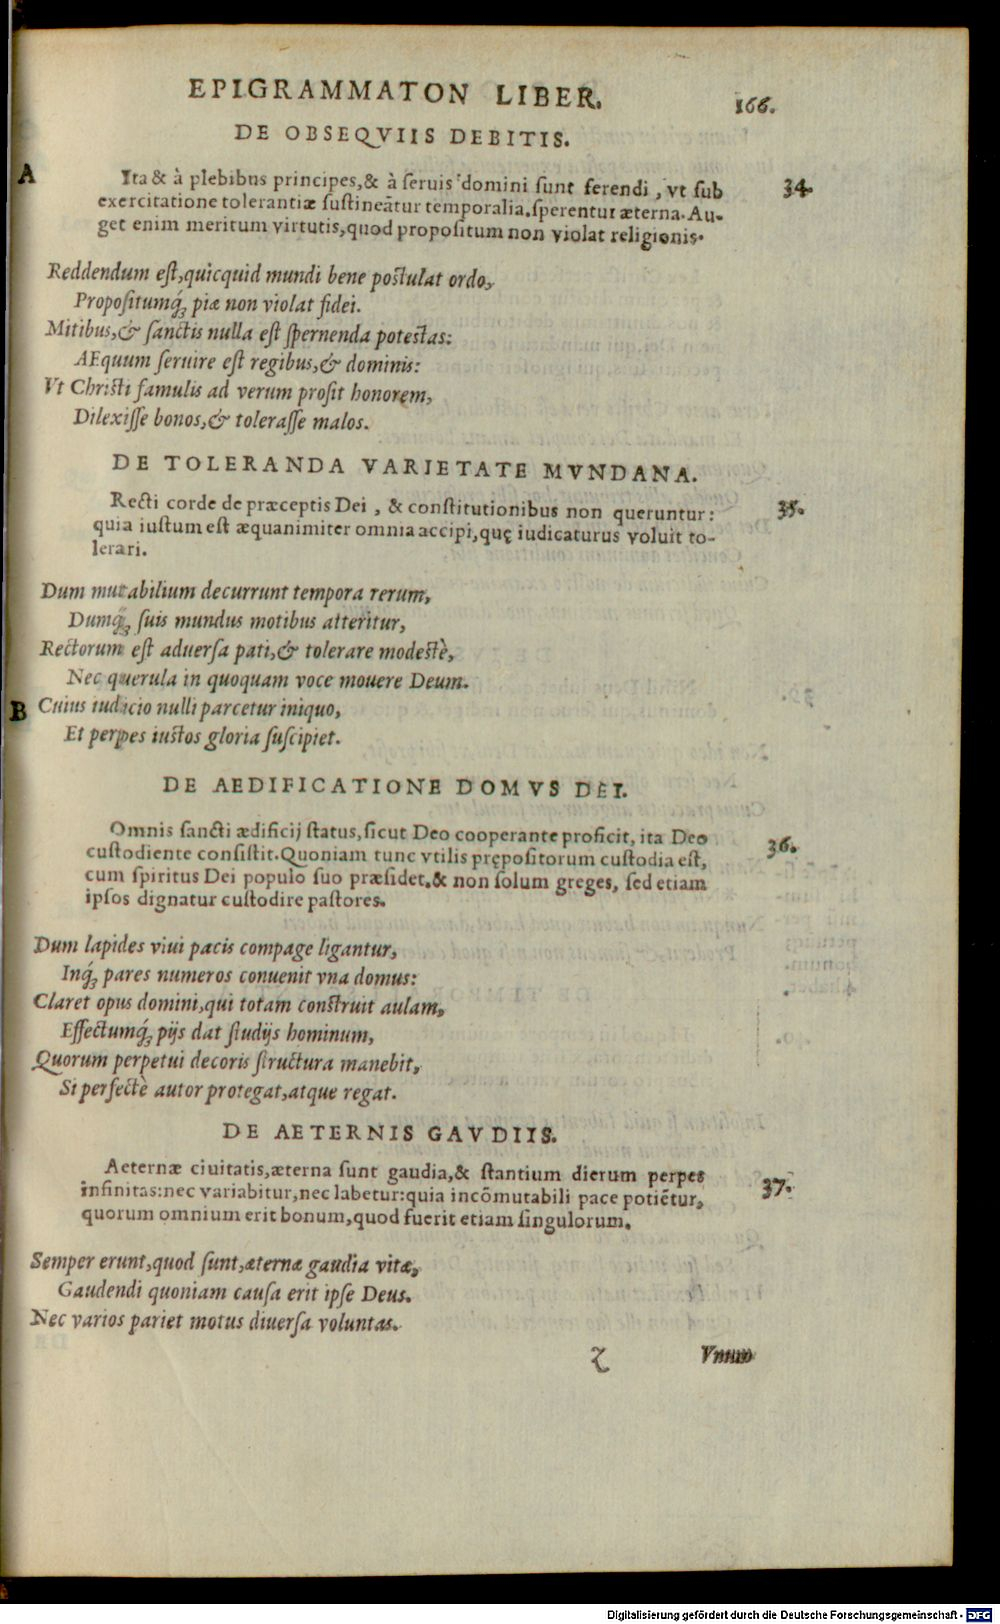 EPIGRAMMATON LIBER. 166.
DE OBSEQVIIS DEBITIS.
A Ita & à plebibus principes, & à seruis domini sunt ferendi, vt sub 34.
exercitatione tolerantiæ sustineãtur temporalia, sperentur æterna. Au-
get enim meritum virtutis, quod propositum non violat religionis.
Reddendum est, quicquid mundi bene postulat ordo,
Propositumq́ꝫ piæ non violat fidei.
Mitibus, & sanctis nulla est spernenda potestas:
AEquum seruire est regibus, & dominis:
Vt Christi famulis ad verum prosit honorem,
Dilexisse bonos, & tolerasse malos.
DE TOLERANDA VARIETATE MVNDANA.
Recti corde de præceptis Dei, & constitutionibus non queruntur: 35.
quia iustum est æquanimiter omnia accipi, quę iudicaturus voluit to-
lerari.
Dum mutabilium decurrunt tempora rerum,
Dumq́ꝫ suis mundus motibus atteritur,
Rectorum est aduersa pati, & tolerare modestè,
Nec querula in quoquam voce mouere Deum.
B Cuius iudicio nulli parcetur iniquo,
Et perpes iustos gloria suscipiet.
DE AEDIFICATIONE DOMVS DEI.
Omnis sancti ædificij status, sicut Deo cooperante proficit, ita Deo 36.
custodiente consistit. Quoniam tunc vtilis prępositorum custodia est,
cum spiritus Dei populo suo præsidet, & non solum greges, sed etiam
ipsos dignatur custodire pastores.
Dum lapides viui pacis compage ligantur,
Inq́ꝫ pares numeros conuenit vna domus:
Claret opus domini, qui totam construit aulam,
Effectumq́ꝫ pijs dat studijs hominum,
Quorum perpetui decoris structura manebit,
Si perfectè autor protegat, atque regat.
DE AETERNIS GAVDIIS.
Aeternæ ciuitatis, æterna sunt gaudia, & stantium dierum perpes 37.
infinitas: nec variabitur, nec labetur: quia incõmutabili pace potiẽtur,
quorum omnium erit bonum, quod fuerit etiam singulorum.
Semper erunt, quod sunt, æternæ gaudia vitæ,
Gaudendi quoniam causa erit ipse Deus.
Nec varios pariet motus diuersa voluntas.
Vnum
Digitalisierung gefördert durch die Deutsche Forschungsgemeinschaft - DFG